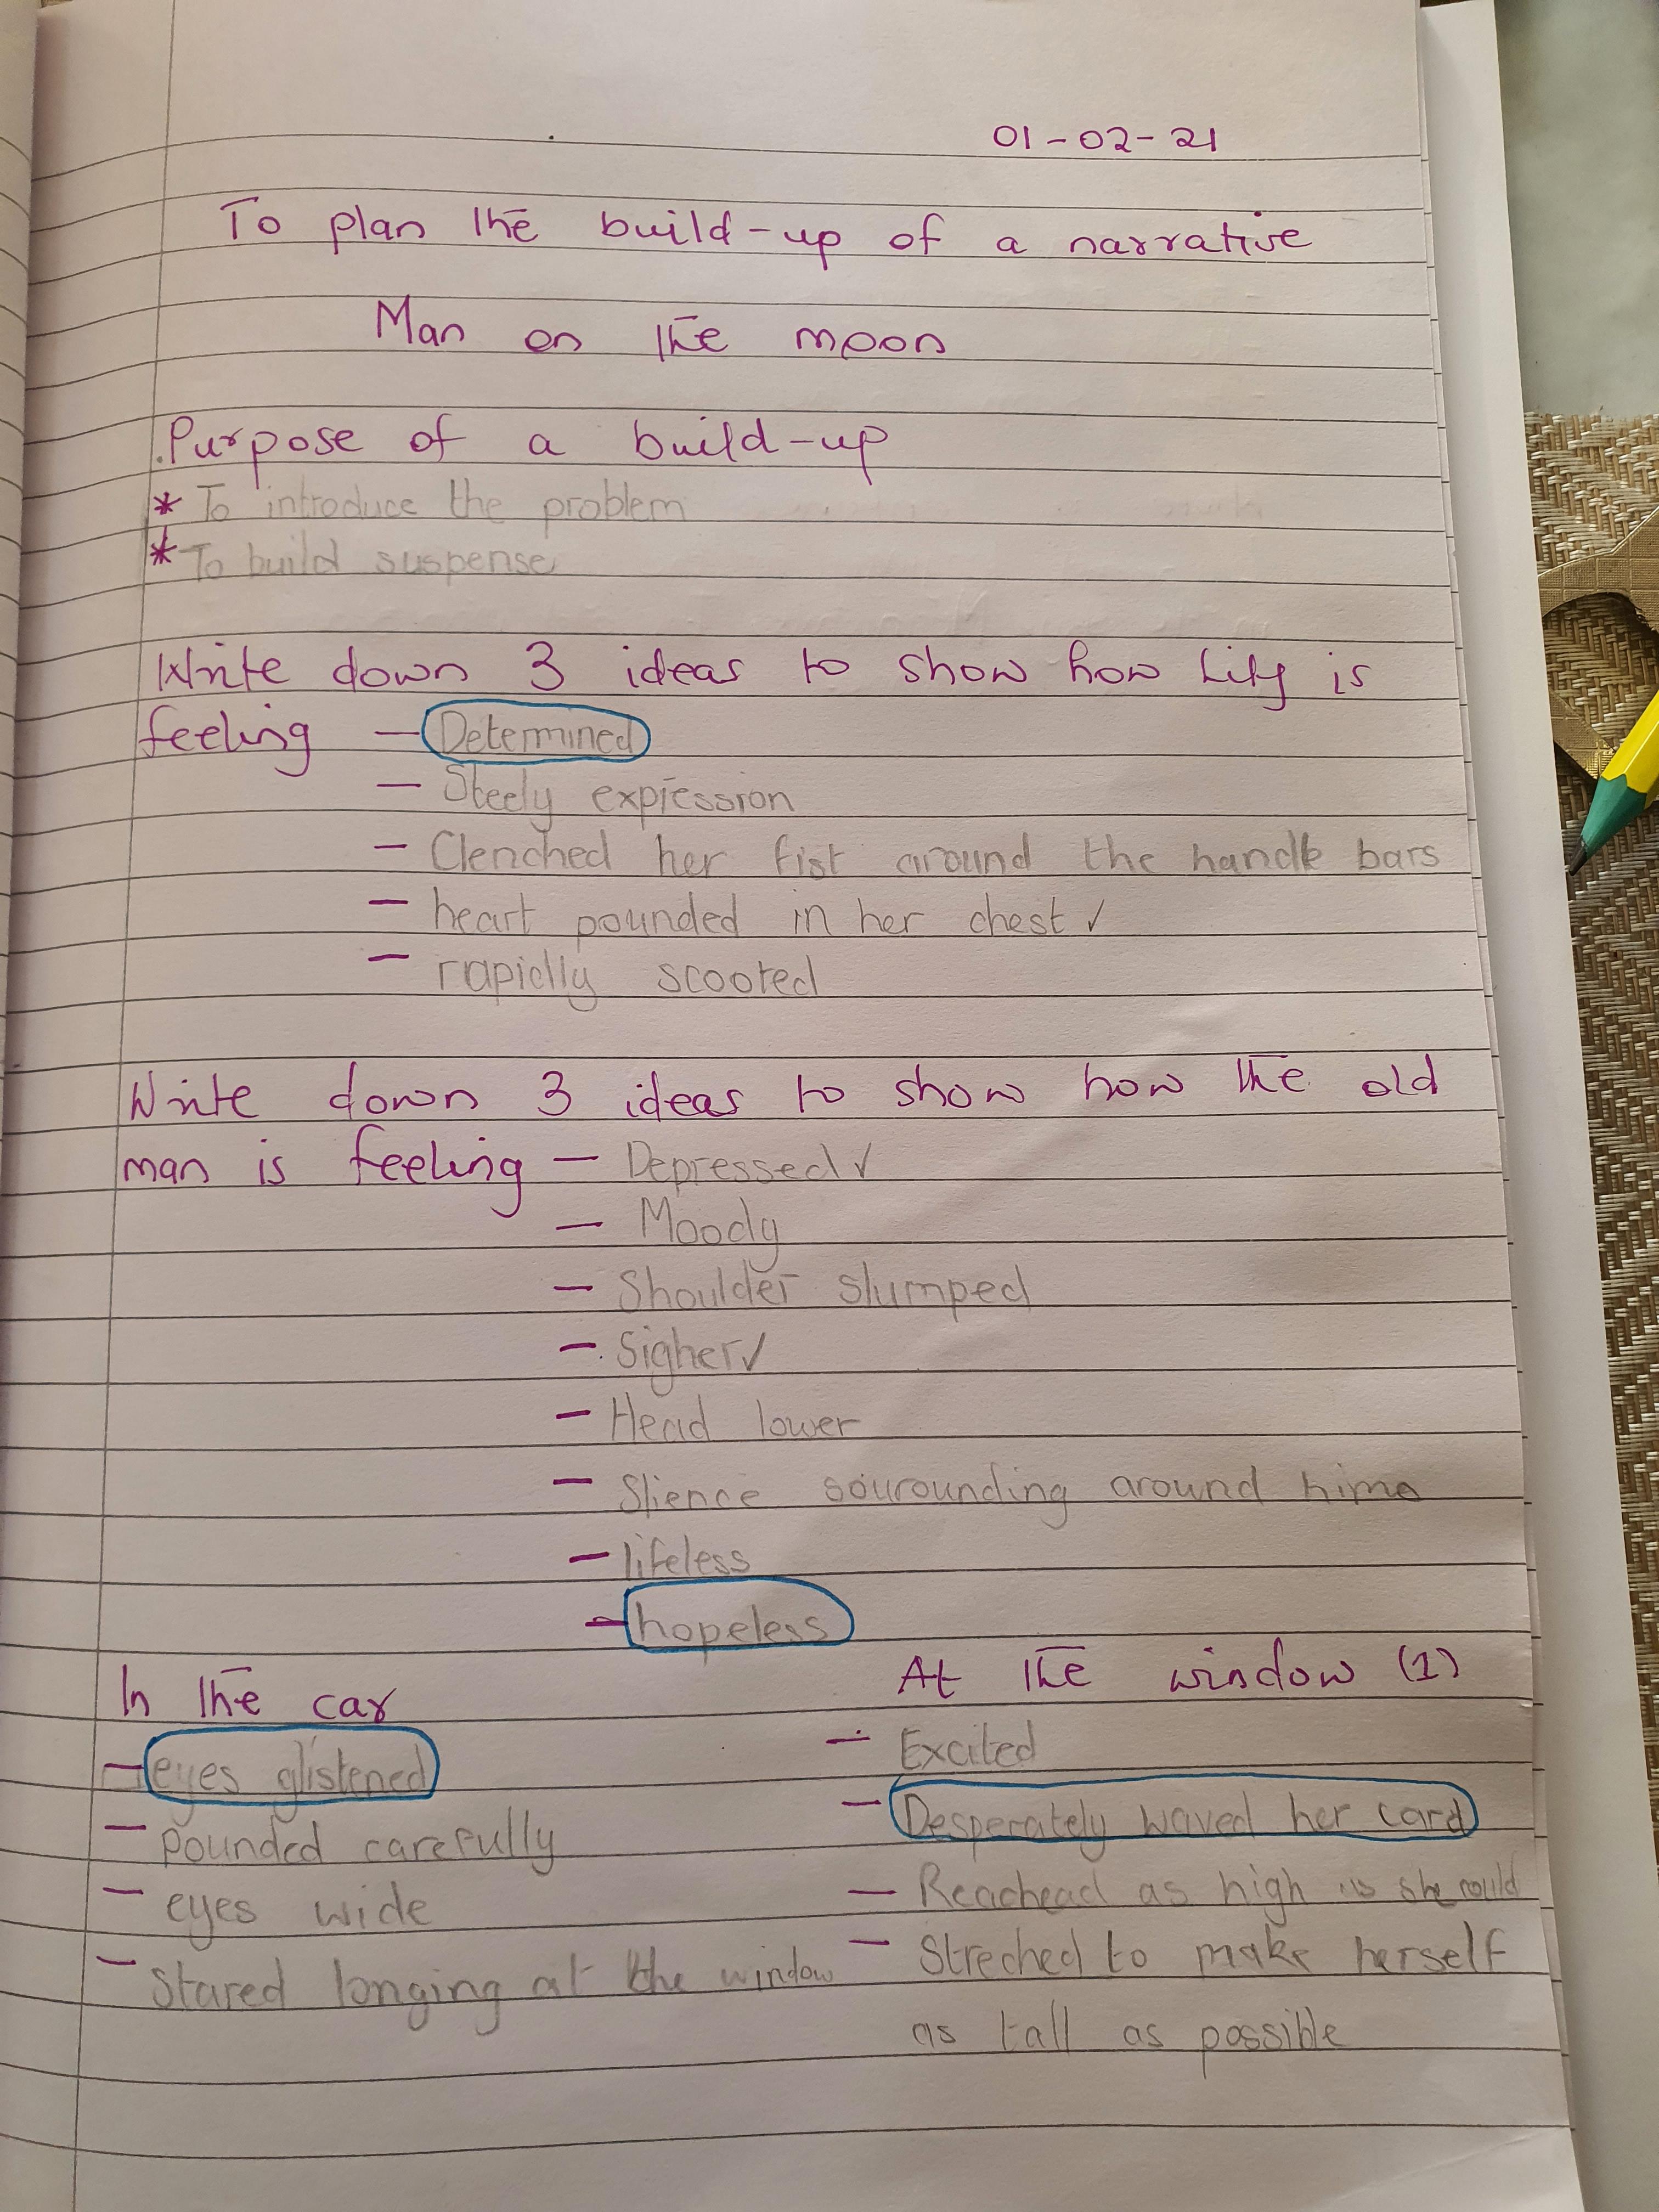 01-02-21
To plan the build-up of a narrative
Man on the moon
Purpose of a build-up
* To introduce the problem
* To build suspense
Write down 3 ideas to show how Lily is
feeling - Determined
- Steely expression
- Clenched her fist around the handle bars
- heart pounded in her chest ✓
- rapidly scooted
Write down 3 ideas to show how the old
man is feeling - Depressed ✓
- Moody
- Shoulder slumped
- Sigher ✓
- Head lower
- Slience sourounding around him
- lifeless
- hopeless
In the car
- eyes glistened
- pounded carefully
- eyes wide
- Stared longing at the window
At the window (1)
- Excited
- Desperately waved her card
- Reachead as high as she could
- Streched to make herself
as tall as possible